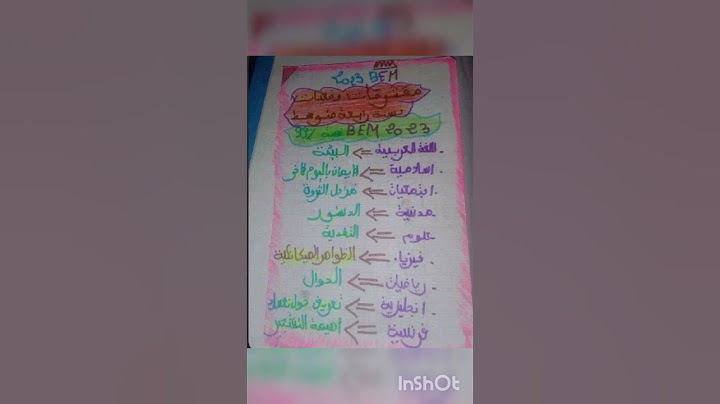 2023 BEM
مقترحات وملمات
سنة رابعة متوسط
BEM 2023 نسبة 99%
اللغة العربية => البيئة
اسلامية => الإيمان باليوم الآخر
اجتماعيات => مراحل الثورة
مدنية => الدستور
علوم => التغذية
فيزياء => الظواهر الميكانيكية
رياضيات => الدوال
انجليزية => تعريف حول نفسك
فرنسية => اهيمة التشجير
InShOt